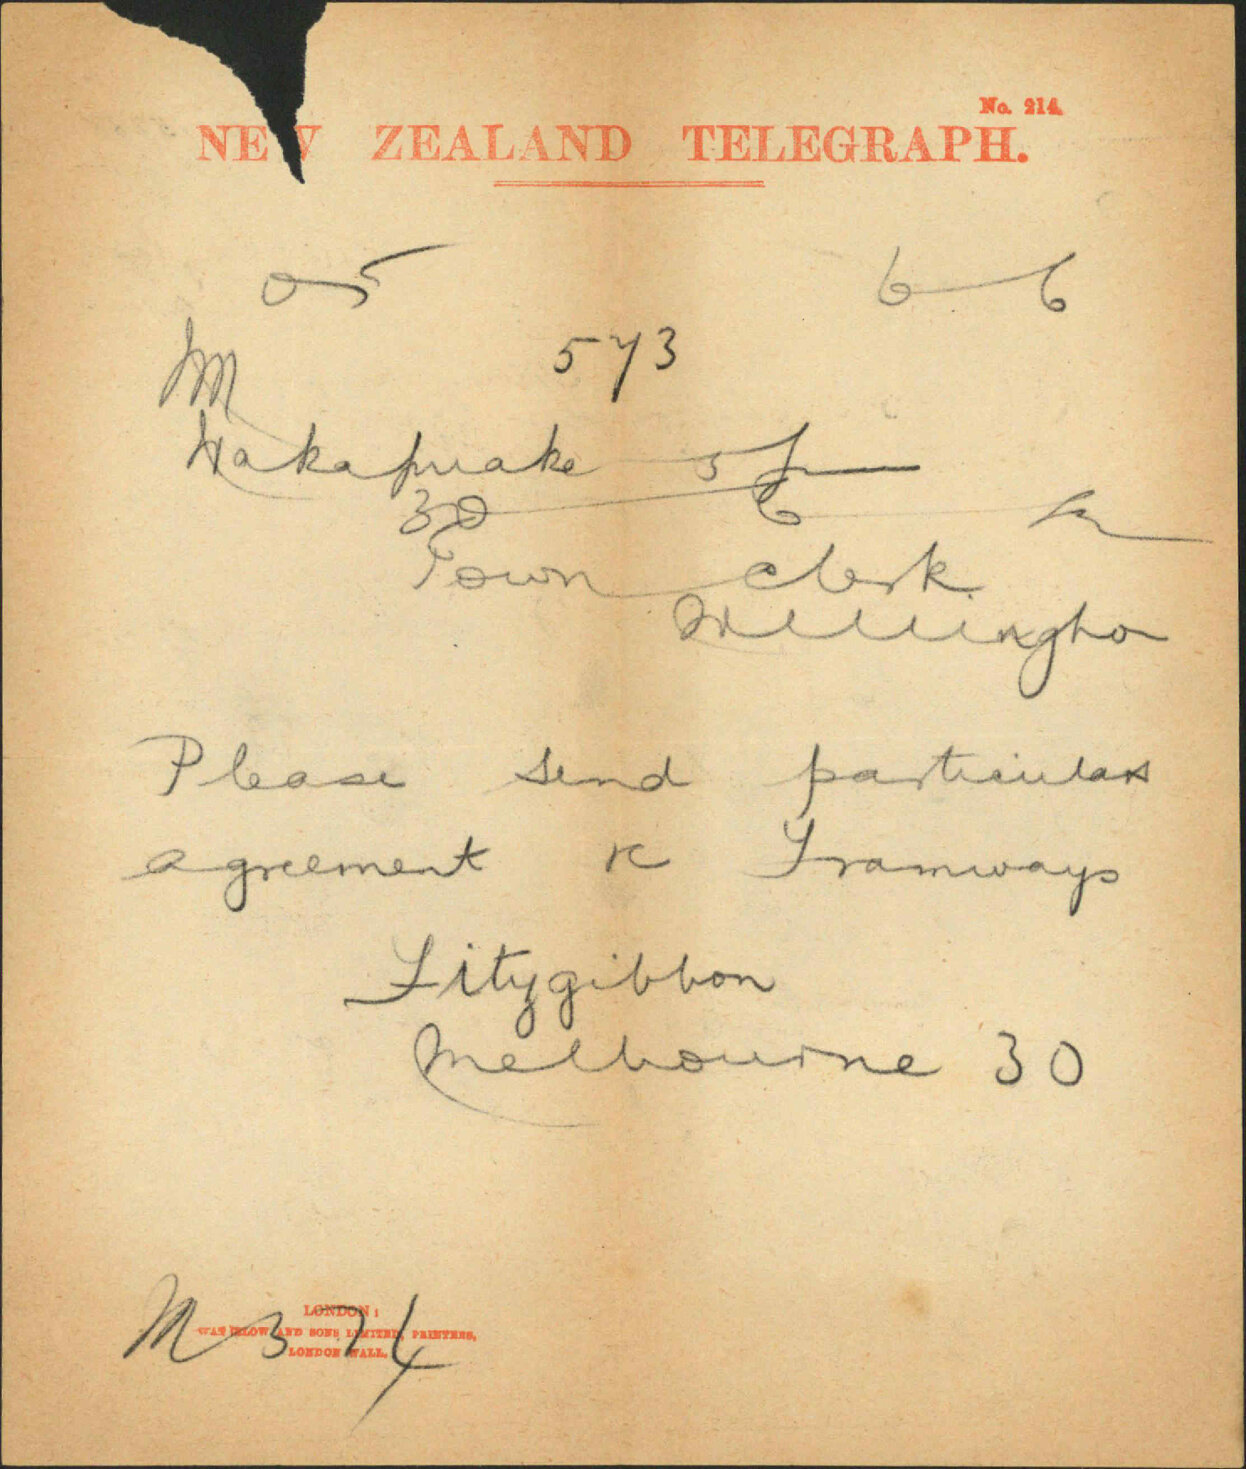 No. 214
NEW ZEALAND TELEGRAPH.
05 6 6
573
M
Wakapuake 5
30 6
Town Clerk
Wellington
Please send particulars
agreement re Tramways
Fitzgibbon
Melbourne 30
LONDON:
WATERLOW AND SONS LIMITED, PRINTERS,
LONDON WALL.
M 374